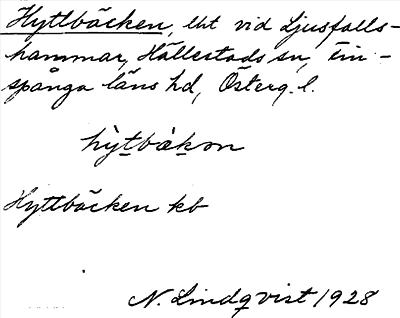 Hyttbäcken, lht vid Ljusfalls-
hammar, Hällestads sn, Fin-
spånga läns hd, Österg. l.
hỳtbàkən
Hyttbäcken kb
N. Lindqvist 1928